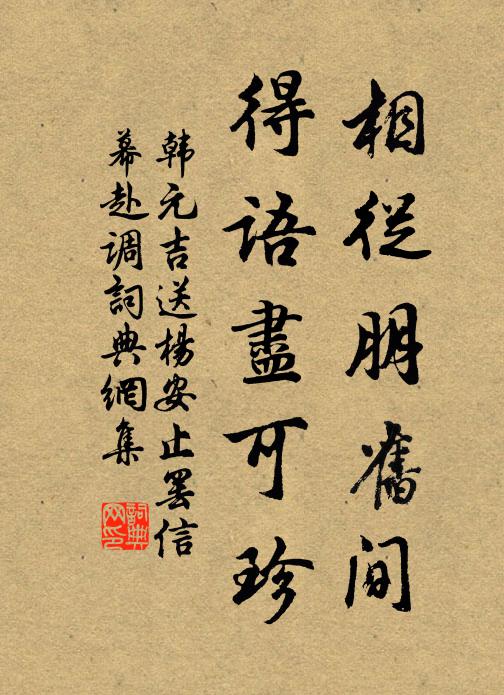 相從朋舊間
得語盡可珍
韩元吉送楊安止罢信
幕赴调詞典網集
詞典网印